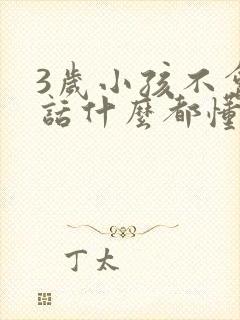 3歲小孩不會
話什麼都懂
丁太